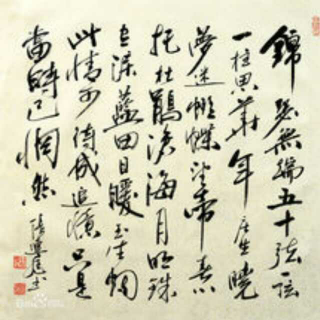 錦瑟無端五十弦一弦
一柱思華年庄生曉
夢迷蝴蝶望帝春心
托杜鵑滄海月明珠
有淚藍田日暖玉生烟
此情可待成追憶只是
當時已惘然